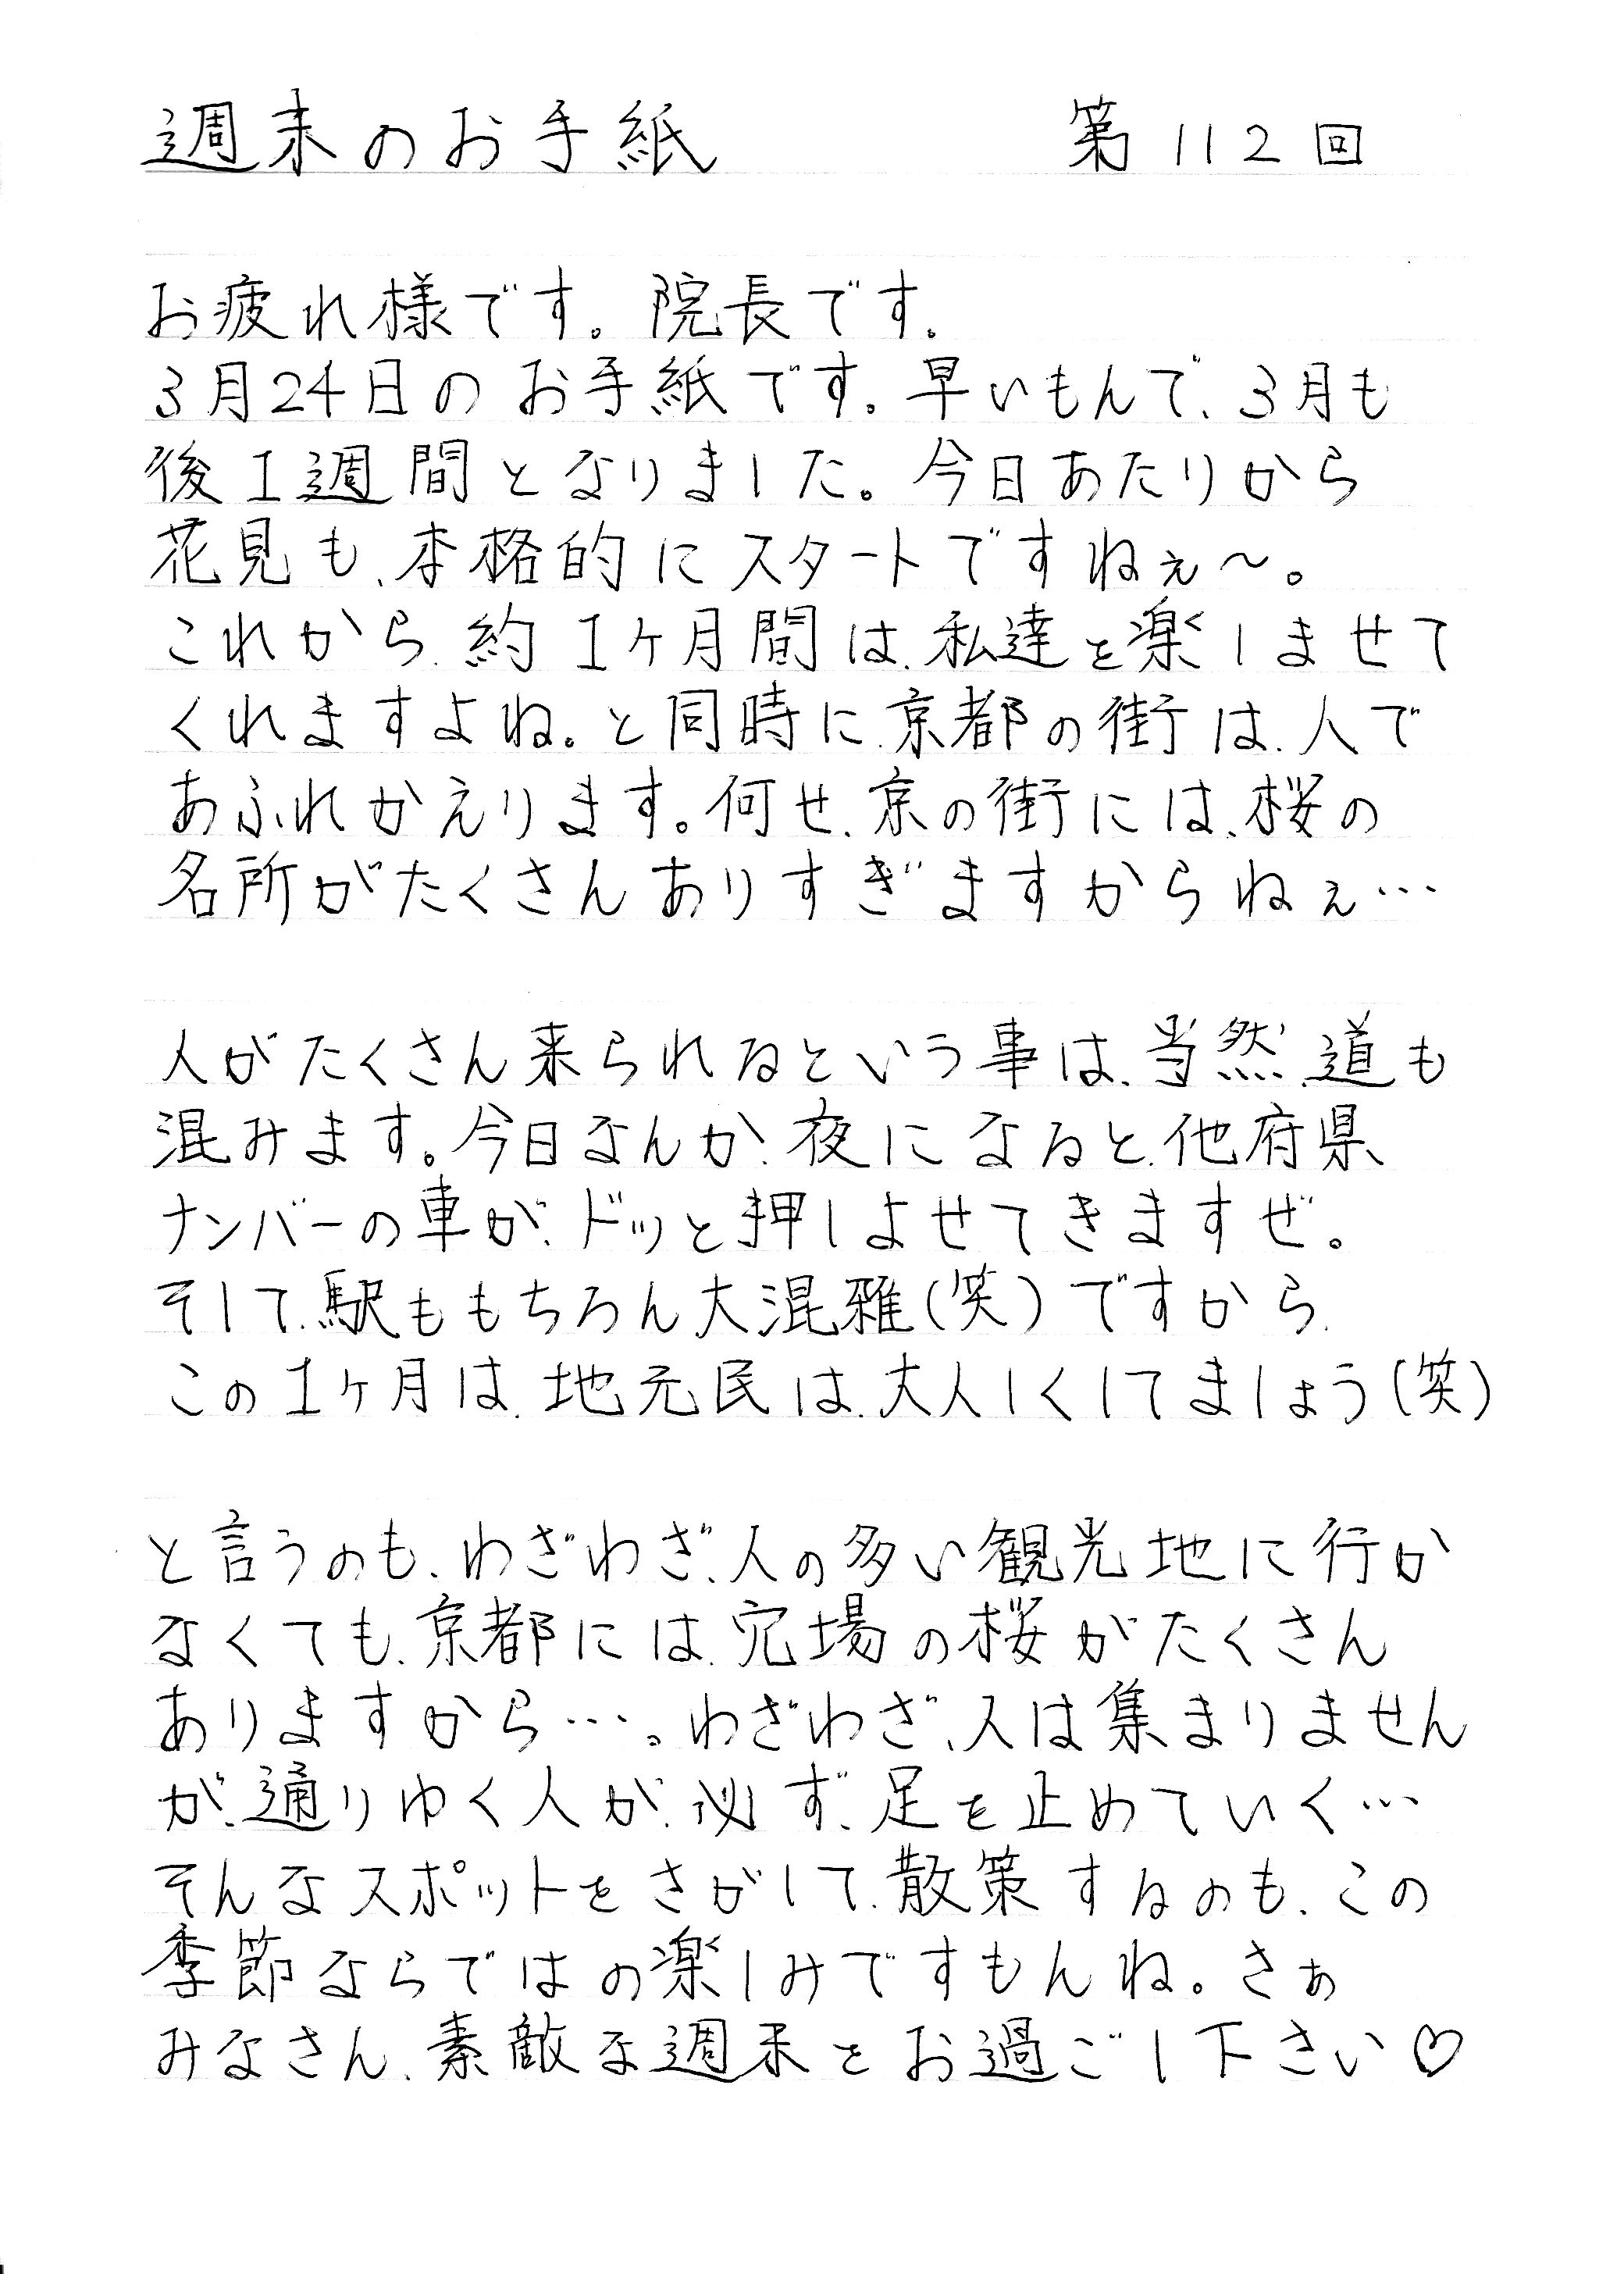 週末のお手紙 第112回
お疲れ様です。院長です。
3月24日のお手紙です。早いもんで、3月も
後1週間となりました。今日あたりから
花見も、本格的にスタートですねぇ〜。
これから、約1ヶ月間は、私達を楽しませて
くれますよね。と同時に、京都の街は、人で
あふれかえります。何せ、京の街には、桜の
名所がたくさんありすぎますからねぇ…
人がたくさん来られるという事は、当然、道も
混みます。今日なんか、夜になると、他府県
ナンバーの車が、ドッと押しよせてきますぜ。
そして、駅ももちろん大混雑(笑)ですから、
この1ヶ月は、地元民は、大人しくしてましょう(笑)
と言うのも、わざわざ、人の多い観光地に行か
なくても、京都には、穴場の桜がたくさん
ありますから…。わざわざ、人は集まりません
が、通りゆく人が、必ず、足を止めていく…
そんなスポットをさがして、散策するのも、この
季節ならではの楽しみですもんね。さぁ
みなさん、素敵な週末をお過ごし下さい♡